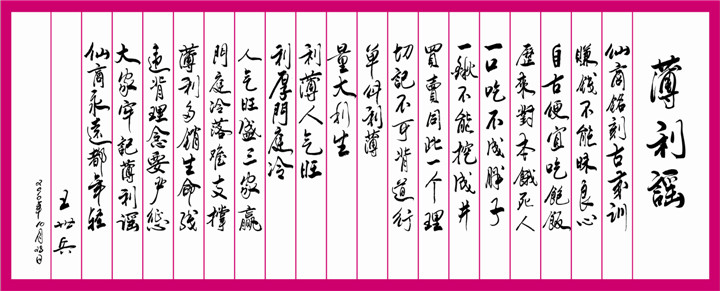 薄利谣
仙商铭刻古来训
赚钱不能昧良心
自古便宜吃饱飯
歷來對本餓死人
一口吃不成胖子
一鍬不能挖成井
買賣同此一个理
切記不可背道行
单件利薄
量大利生
利薄人气旺
利厚門庭冷
人气旺盛三家赢
門庭冷落难支撑
薄利多销生命线
违背理念要严惩
大家牢記薄利谣
仙商永遠都年轻
王世兵